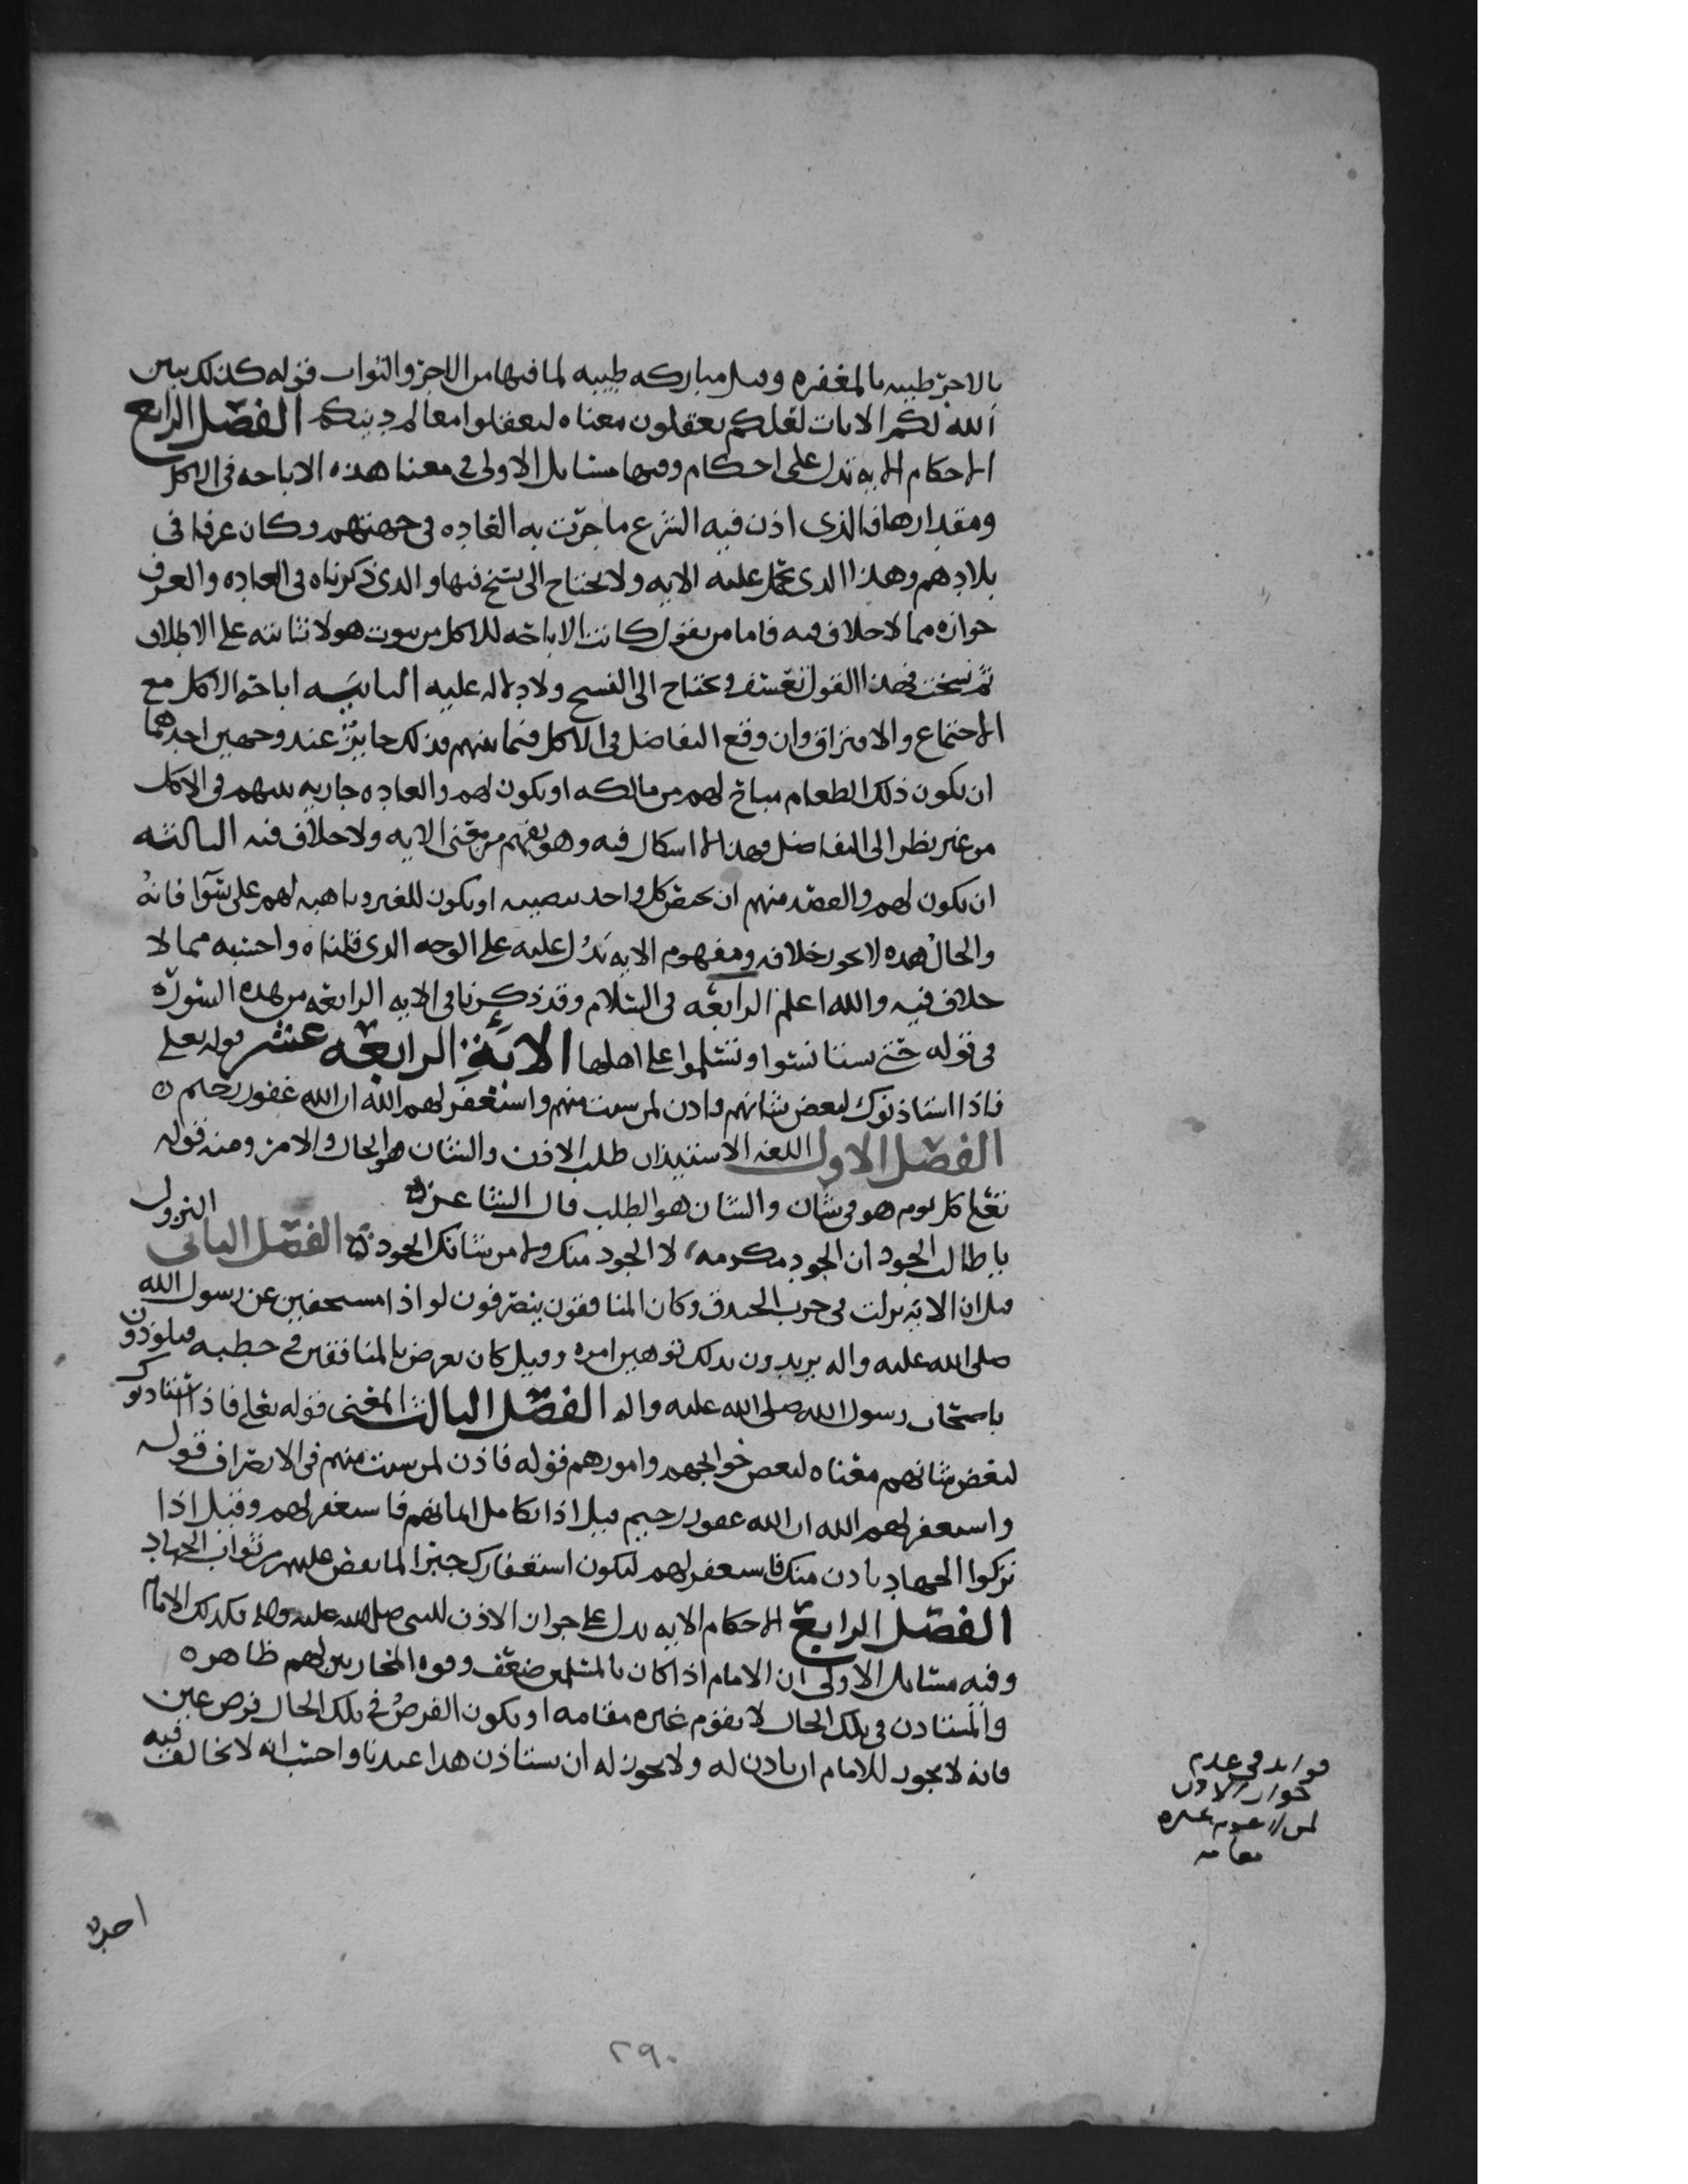 بالاجر طيبه بالمغفره وقيل مباركه طيبه لما فيها من الاجر والثواب قوله كذلك يبين
الله لكم الايات لعلكم تعقلون معناه لتعقلوا معالم دينكم الفصل الرابع
الاحكام الايه تدل على احكام وفيها مسايل الاولى في معنا هذه الاباحه في الاكل
ومقدارها فالذي اذن فيه الشرع ما جرت به العاده في جهتهم وكان عرفا في
بلادهم وهذا الذي تحمل عليه الايه ولا يحتاج الى نسخ فيها والذي ذكرناه في العاده والعرف
جوازه مما لا خلاف فيه فاما من يقول كانت الاباحه للاكل من بيوت هولا ثابته على الاطلاق
ثم نسخت فهذا القول تعسف ويحتاج الى الفسح ولا دلاله عليه الثانيه اباحه الاكل مع
الاجتماع والافتراق وان وقع التفاضل في الاكل فيما بينهم فذلك جايز عند وجهين احدهما
ان يكون ذلك الطعام مباح لهم من مالكه او يكون لهم والعاده جاريه بينهم في الاكل
من غير نظر الى التفاضل فهذا لا اشكال فيه وهو يفهم من معنى الايه ولا خلاف فيه الثالثه
ان يكون لهم والقصد منهم ان يختص كل واحد بنصيبه او يكون للغير وباهبه لهم على سوا فانه
والحال هذه لا يجوز خلافه ومفهوم الايه تدل عليه على الوجه الذي قلناه واحسبه مما لا
خلاف فيه والله اعلم الرابعه في السلام وقد ذكرنا في الايه الرابعه من هذه السوره
في قوله حتى تستانسوا وتسلموا على اهلها الايه الرابعه عشر قوله تعلى
فاذا استاذنوك لبعض شانهم فاذن لمن شئت منهم واستغفر لهم الله ان الله غفور رحيم
الفصل الاول اللغه الاستيذان طلب الاذن والشان هو الحال والامر ومنه قوله
تعلى كل يوم هو في شان والشان هو الطلب قال الشاعر
يا طالب الجود ان الجود مكرمه لا الجود منك ولا من شانك الجود الفصل الثاني النزول
قيل ان الايه نزلت في حرب الخندق وكان المنافقون ينصرفون لواذا مستخفين عن رسول الله
صلى الله عليه واله يريدون بذلك توهين امره وقيل كان يعرض بالمنافقين في خطبه فيلوذون
باصحاب رسول الله صلى الله عليه واله الفصل الثالث المعنى قوله تعلى فاذا استاذنوك
لبعض شانهم معناه لبعض حوائجهم وامورهم فقوله فاذن لمن شئت منهم في الانصراف قوله
واستغفر لهم الله ان الله غفور رحيم قيل اذا تكامل ايمانهم فاستغفر لهم وقيل اذا
تركوا الجهاد باذن منك فاستغفر لهم ليكون استغفارك جبرا لما نقص عليهم من ثواب الجهاد
الفصل الرابع الاحكام الايه تدل على جواز الاذن للنبي صلى الله عليه واله وكذلك الامام
وفيه مسايل الاولى ان الامام اذا كان بالمسلمين ضعف وقوه المحاربين لهم ظاهره
والمستاذن في تلك الحال لا يقوم غيره مقامه او يكون الفرض في تلك الحال فرض عين
فانه لا يجوز للامام ان ياذن له ولا يجوز له ان يستاذن هذا عندنا واحسب انه لا يخالف فيه
فوايد في عدم
جواز الاذن
لمن لا يقوم غيره
مقامه
احد
٢٩٠